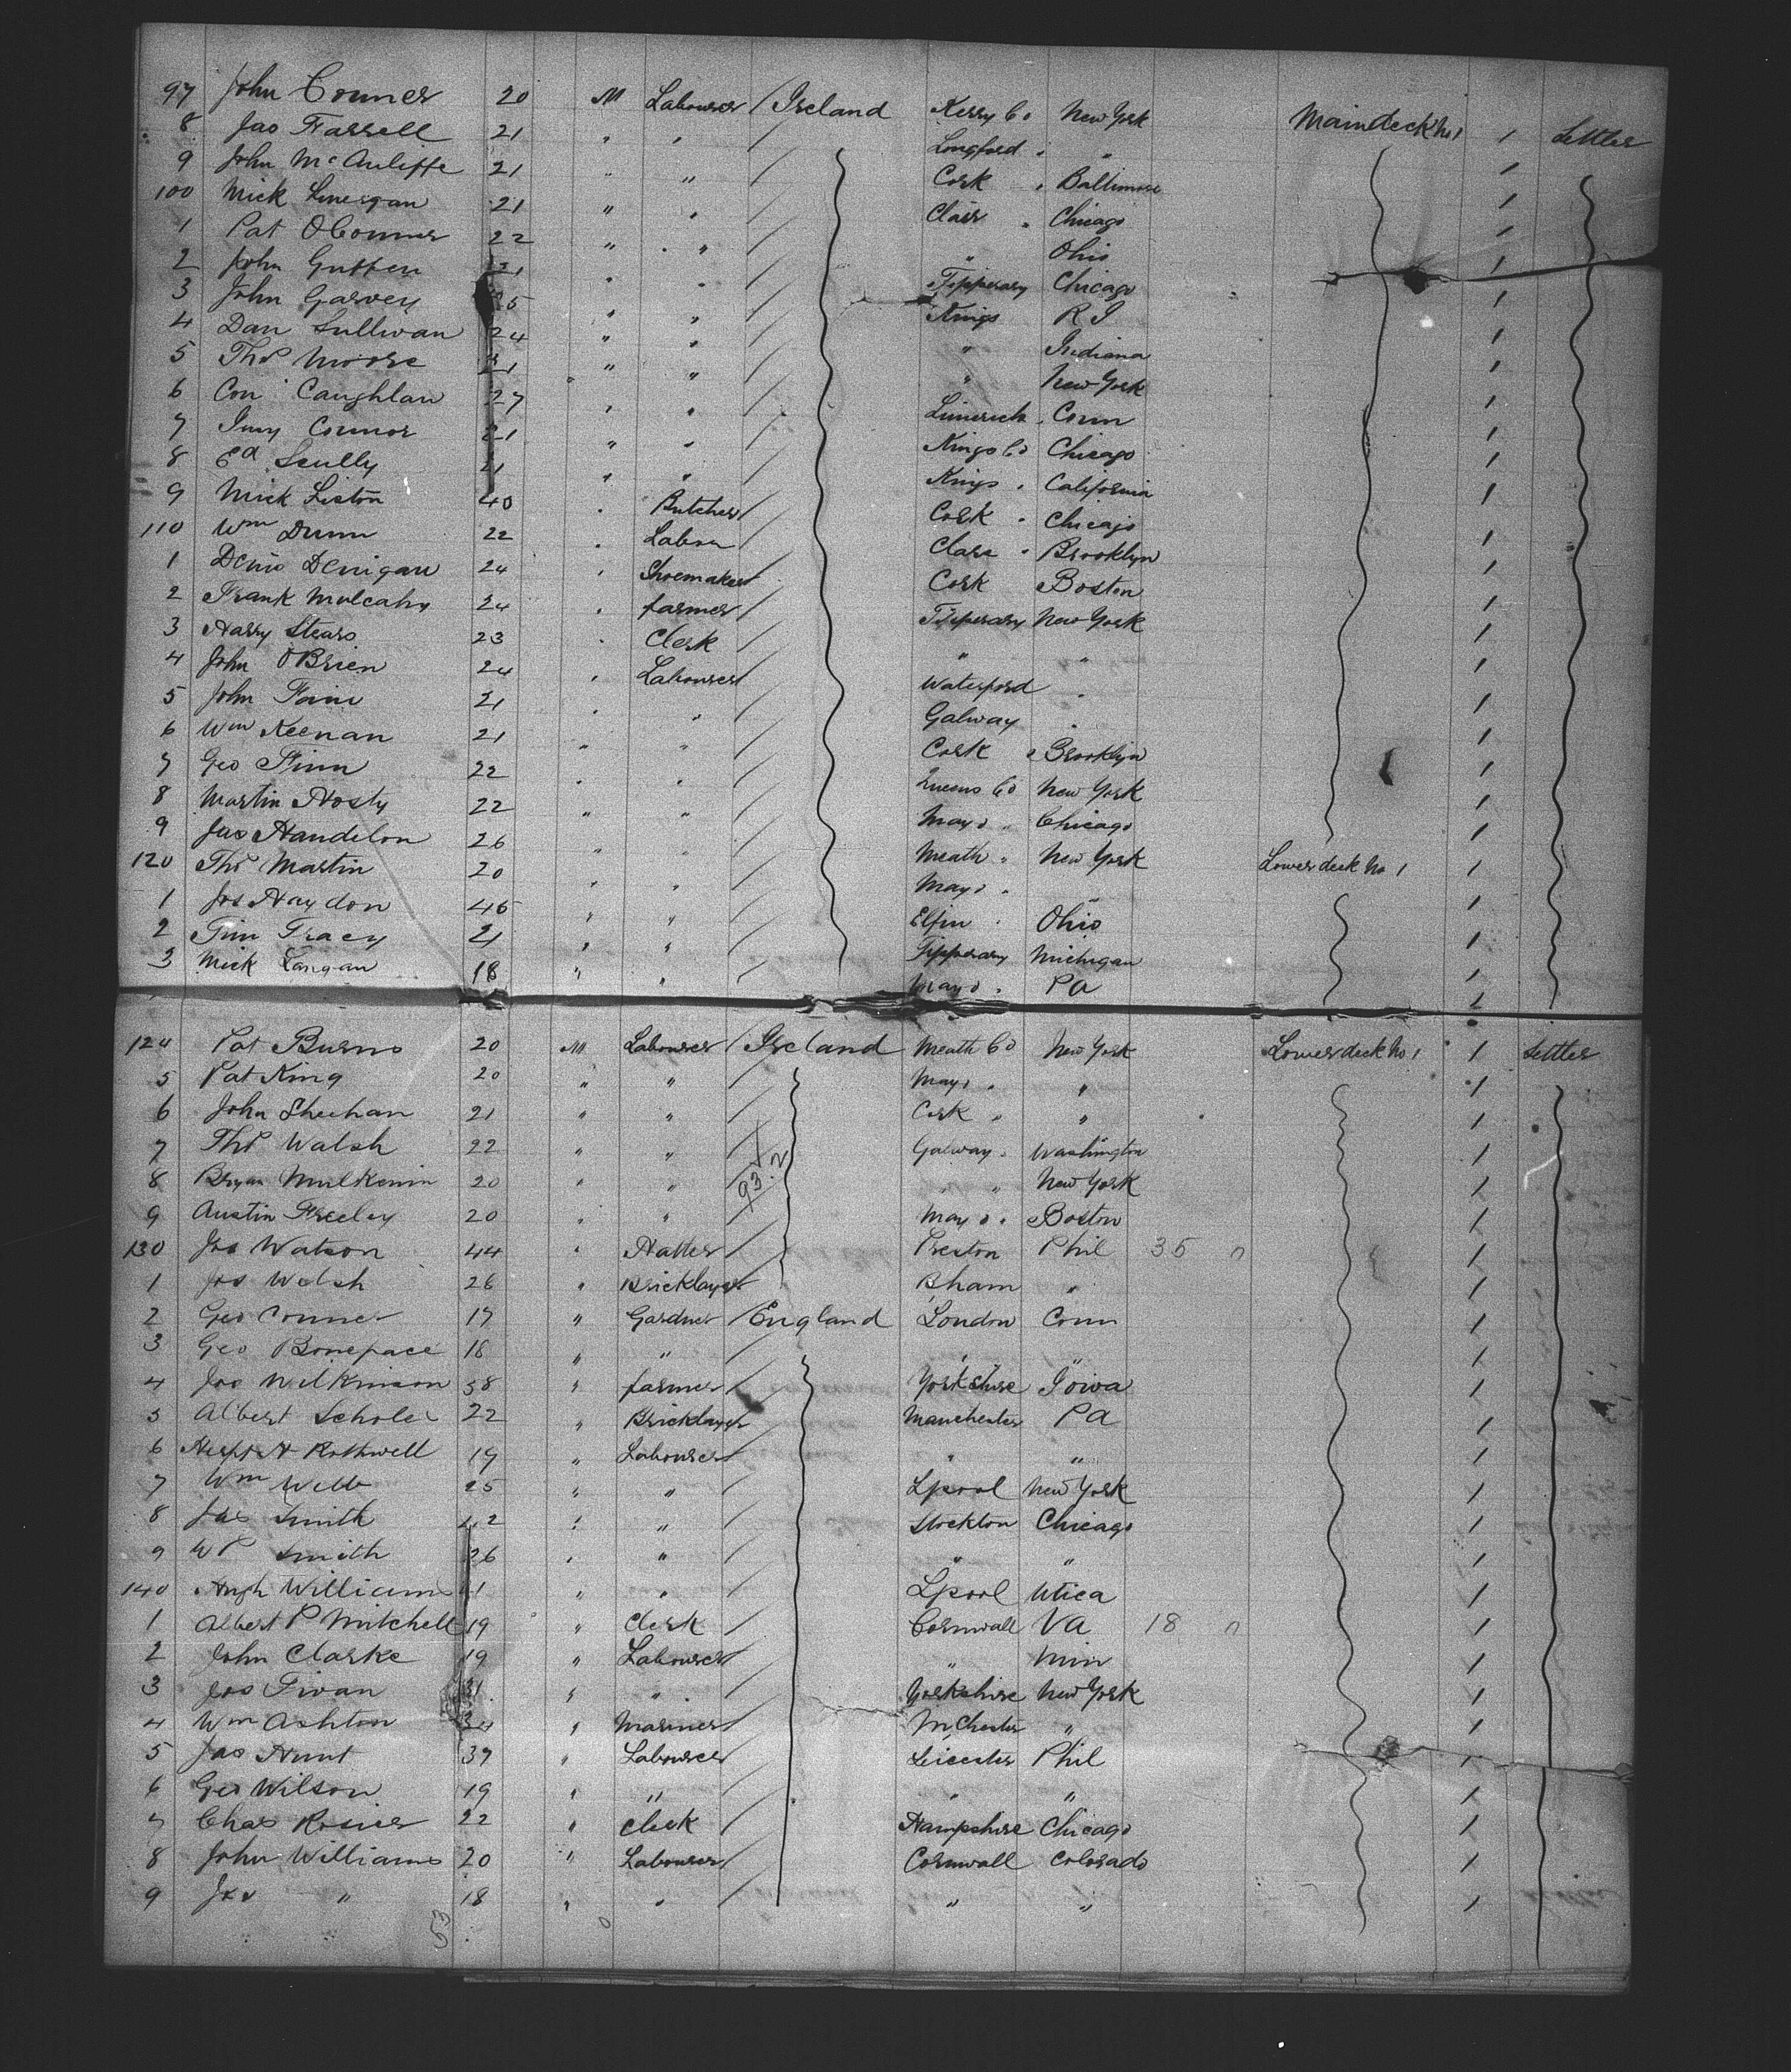 97 John Conner 20 M Labourer / Ireland Kerry Co New York Maindeck No 1 1 Settler
8 Jas Farrell 21 " " / Longford " " 1
9 John McAuliffe 21 " " / Cork " Baltimore 1
100 Mick 21 " " / Clair " Chicago 1
1 Pat OConner 22 " " / " Ohio 1
2 John 21 " " / Tipperary Chicago 1
3 John Garvey 25 " " / Kings R I 1
4 Dan Sullivan 24 " " / " Indiana 1
5 Thos Moore 21 " " / " New York 1
6 Con Caughlan 27 " " / Limerick " Conn 1
7 Connor 21 " " / Kings Co Chicago 1
8 Ed Scully 21 " " / Kings " California 1
9 Mick Liston 40 " Butcher / Cork " Chicago 1
110 Wm Dunn 22 " Labour / Clare " Brooklyn 1
1 Denis Denigan 24 " Shoemaker / Cork Boston 1
2 Frank Mulcahy 24 " farmer / Tipperary New York 1
3 Harry Stears 23 " Clerk / " " 1
4 John OBrien 24 " Labourer / Waterford " 1
5 John 21 " " / Galway " 1
6 Wm Keenan 21 " " / Cork " Brooklyn 1
7 Geo Finn 22 " " / Queens Co New York 1
8 Martin Hosty 22 " " / Mayo " Chicago 1
9 Jas 26 " " / Meath " New York Lowerdeck No 1 1
120 Thos Martin 20 " " / Mayo " " 1
1 Jos Haydon 45 " " / " Ohio 1
2 Tim Tracey 21 " " / Tipperary Michigan 1
3 Mick Langan 18 " " / Mayo " PA 1
124 Pat Burns 20 M Labourer / Ireland Meath Co New York Lowerdeck No 1 1 Settler
5 Pat King 20 " " / Mayo " " 1
6 John Sheehan 21 " " / Cork " " 1
7 Thos Walsh 22 " " / Galway " Washington 1
8 Bryan Mulkenin 20 " " / 93.2 " " New York 1
9 Austin Freeley 20 " " / Mayo " Boston 1
130 Jas Watson 44 " Hatter / Preston Phil 35 n 1
1 Jos Welsh 26 " Bricklayer / Bham " 1
2 Geo Conner 17 " Gardner / England London Conn 1
3 Geo Boneface 18 " " / " " 1
4 Jos Wilkinson 38 " farmer / Yorkshire Iowa 1
5 Albert Schole 22 " Bricklayer / Manchester PA 1
6 H Rothwell 19 " Labourer / " " 1
7 Wm Webb 25 " " / Lpool New York 1
8 Jas Smith 42 " " / Stockton Chicago 1
9 W P Smith 26 " " / " " 1
140 Hugh Williams 41 " " / Lpool Utica 1
1 Albert P Mitchell 19 " Clerk / Cornwall VA 18 n 1
2 John Clarke 19 " Labourer / " Min 1
3 Jos 31 " " / Yorkshire New York 1
4 Wm Ashton 34 " Mariner / MChester " 1
5 Jas Hunt 37 " Labourer / Leicester Phil 1
6 Geo Wilson 19 " " / " " 1
7 Chas Rosier 22 " Clerk / Hampshire Chicago 1
8 John Williams 20 " Labourer / Cornwall Colorado 1
9 Jos " 18 " " / " " 1
53